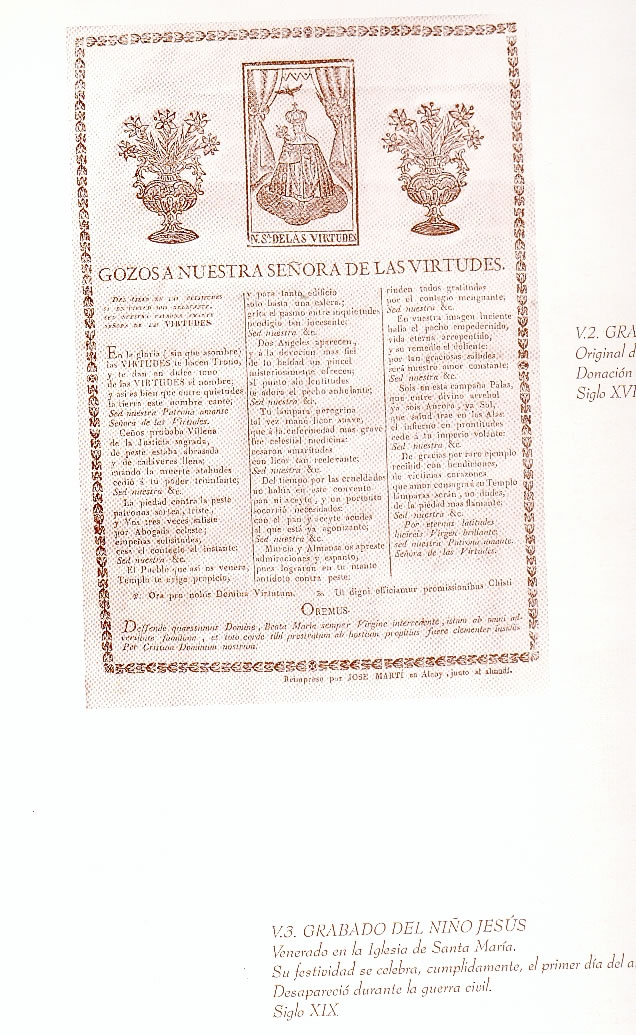 N. Sª. DE LAS VIRTUDES
GOZOS A NUESTRA SEÑORA DE LAS VIRTUDES.
SEÑORA DE LAS VIRTUDES
En la gloria (sin que asombre)
las VIRTUDES te hacen Trono,
y te dan en dulce tono
de las VIRTUDES el nombre;
y asi es bien que entre quietudes
la tierra este nombre cante;
Sed nuestra Patrona amante
Señora de las Virtudes.
Ceños probaba Villena
de la Justicia sagrada,
de peste estaba abrasada
y de cadáveres llena;
cuando la muerte ataludes
cedió á tu poder triunfante;
Sed nuestra &c.
La piedad contra la peste
patronas sortea, triste,
y Vos tres veces saliste
por Abogada celeste;
empeñas solicitudes,
cesa el contagio al instante:
Sed nuestra &c.
El Pueblo que asi os venera,
Templo te erige propicio,
y para tanto edificio
solo basta una calera;
grita el pasmo entre inquietudes
prodigio tan incesante;
Sed nuestra &c.
Dos Angeles aparecen,
y a la devocion mas fiel
de tu beldad un pincel
misteriosamente ofrecen;
al punto sin lentitudes
te adora el pecho anhelante;
Sed nuestra &c.
Tu lampara peregrina
tal vez manó licor suave,
que á la enfermedad mas grave
fue celestial medicina:
cesaron amaritudes
con licor tan relevante;
Sed nuestra &c.
Del tiempo por las crueldades
no habia en este convento
pan ni aceyte, y un portento
socorrió necesidades:
con el pan y aceyte acudes
al que está ya agonizante;
Sed nuestra &c.
Murcia y Almansa os apreste
admiraciones y espanto,
pues lograron en tu manto
antidoto contra peste:
rinden todos gratitudes
por el contagio menguante;
Sed nuestra &c.
En vuestra imagen luciente
halla el pecho empedernido,
vida eterna arrepentido,
y su remedio el doliente:
por tan graciosas saludes
será nuestro amor constante;
Sed nuestra &c.
Sois en esta campaña Palas,
que entre divino arrebol
ya sois Aurora, ya Sol,
que salud trae en las Alas:
el infierno en prontitudes
cede á tu imperio volante:
Sed nuestra &c.
De gracias por raro ejemplo
recibid con bendiciones,
de víctimas corazones
que amor consagra á su Templo
lámparas serán, no dudes,
de la piedad mas flamante:
Sed nuestra &c.
Por eternas latitudes
luzcais Virgen brillante,
sed nuestra Patrona amante.
Señora de las Virtudes.
℣. Ora pro nobis Domina Virtutum. ℟. Ut digni efficiamur promissionibus Chisti
OREMUS.
Deffende quaessumus Domine, Beata Maria semper Virgine intercedente, istam ab omni ad-
versitate familiam, et toto corde tibi prostratam ab hostium propitius tuere clementer insidiis.
Per Cristum Dominum nostrum.
Reimpreso por JOSE MARTÍ en Alcoy, junto al almudí.
V.2. GRA
Original d
Donación
Siglo XVI
V.3. GRABADO DEL NIÑO JESÚS
Venerado en la Iglesia de Santa María.
Su festividad se celebra, cumplidamente, el primer día del a
Desapareció durante la guerra civil.
Siglo XIX